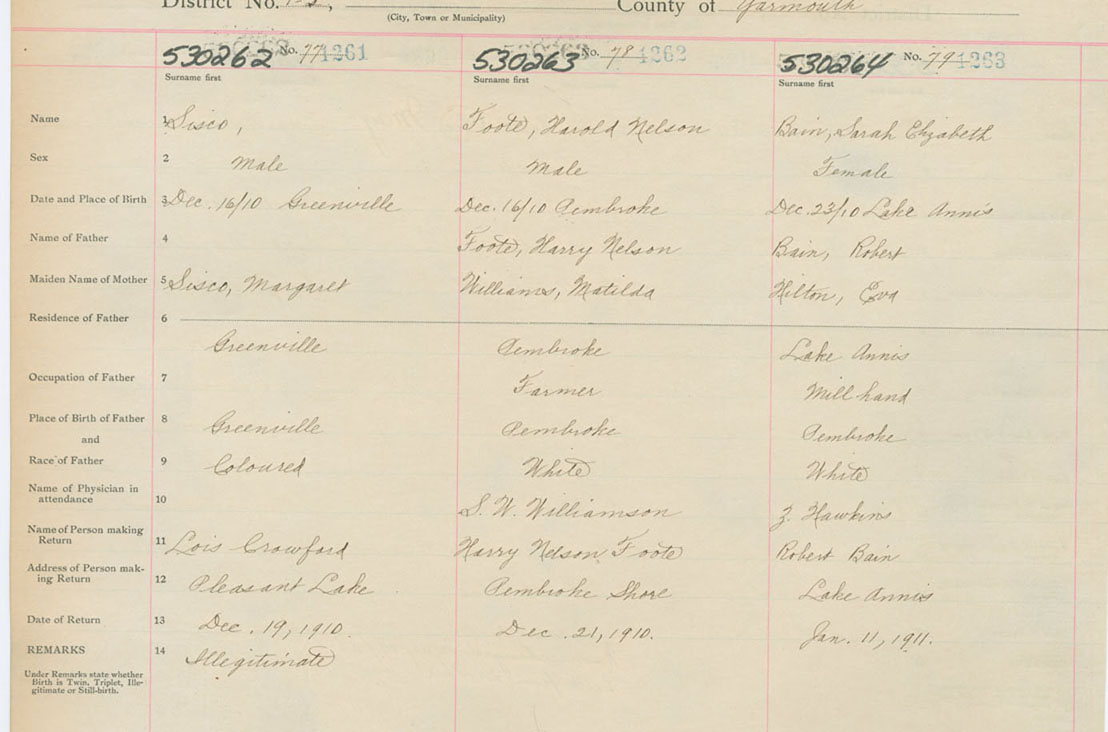 District No. County of Yarmouth
(City, Town or Municipality)
530262 No. 77 1261 530263 No. 78 1262 530264 No. 79 1263
Surname first Surname first Surname first
Name 1 Sisco, Foote, Harold Nelson Bain, Sarah Elizabeth
Sex 2 Male Male Female
Date and Place of Birth 3 Dec. 16/10 Greenville Dec. 16/10 Pembroke Dec. 23/10 Lake Annis
Name of Father 4 Foote, Harry Nelson Bain, Robert
Maiden Name of Mother 5 Sisco, Margaret Williams, Matilda Hilton, Eva
Residence of Father 6
Greenville Pembroke Lake Annis
Occupation of Father 7 Farmer Mill hand
Place of Birth of Father 8 Greenville Pembroke Pembroke
and
Race of Father 9 Coloured White White
Name of Physician in
attendance 10 S. W. Williamson Z. Hawkins
Name of Person making
Return 11 Lois Crowford Harry Nelson Foote Robert Bain
Address of Person mak-
ing Return 12 Pleasant Lake Pembroke Shore Lake Annis
Date of Return 13 Dec. 19, 1910. Dec. 21, 1910. Jan. 11, 1911.
REMARKS 14 Illegitimate
Under Remarks state whether
Birth is Twin, Triplet, Ille-
gitimate or Still-birth.